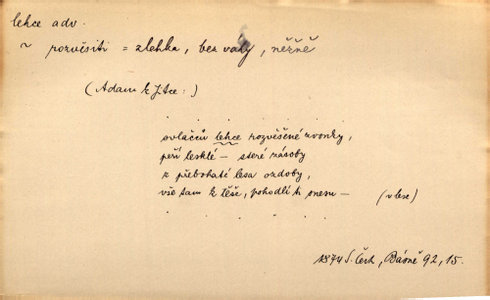 lehce adv.
~ rozvěsiti = zlehka, bez váhy, něžně
(Adam k Jitce:)
. . . . .
svlačců lehce rozvěšené zvonky,
peří lesklé – steré násoby
z přebohaté lesa ozdoby,
vše tam k těše, pohodlí ti snesu – (v lese)
. . . . .
1874 S. Čech, Básně 92, 15.